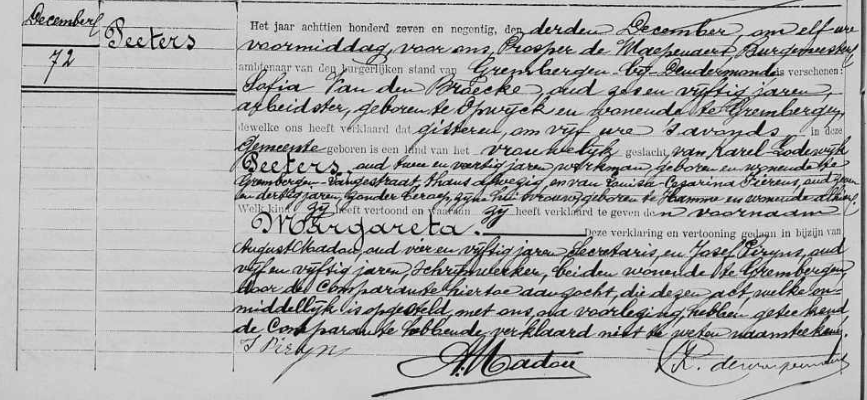 December
72
Peeters
Het jaar achttien honderd zeven en negentig, den derden December, om elf ure
voormiddag, voor ons, Prosper de Maepenaert, Burgemeester
ambtenaar van den burgerlijken stand van Grembergen bij Dendermonde is verschenen:
Sofia Van den Broecke, oud zes en vijftig jaren,
arbeidster, geboren te Opwijck en wonende te Grembergen,
dewelke ons heeft verklaard dat gisteren, om vijf ure 's avonds in deze
Gemeente geboren is een kind van het vrouwelijk geslacht, van Karel Lodewijk
Peeters, oud twee en veertig jaren, werkman, geboren en wonende te
Grembergen straat, thans afwezig en van Louisa Cesarina Fierens, oud zeven
en dertig jaren, zonder beroep, zijne huisvrouw, geboren te Hamme en wonende alhier.
Welk kind zij heeft vertoond en waaraan zij heeft verklaard te geven den voornaam
Margareta. Deze verklaring en vertooning gedaan in bijzijn van
August Madou, oud vier en vijftig jaren, Secretaris, en Josef Piryns, oud
vijf en vijftig jaren, schrijnwerker, beiden wonende te Grembergen,
door de Comparante hiertoe aangezocht, die dezen act, welke on-
middellijk is opgesteld, met ons, na voorlezing, hebben geteekend
de Comparante hebbende verklaard niet te weten naamteekenen.
J Piryns
A. Madou